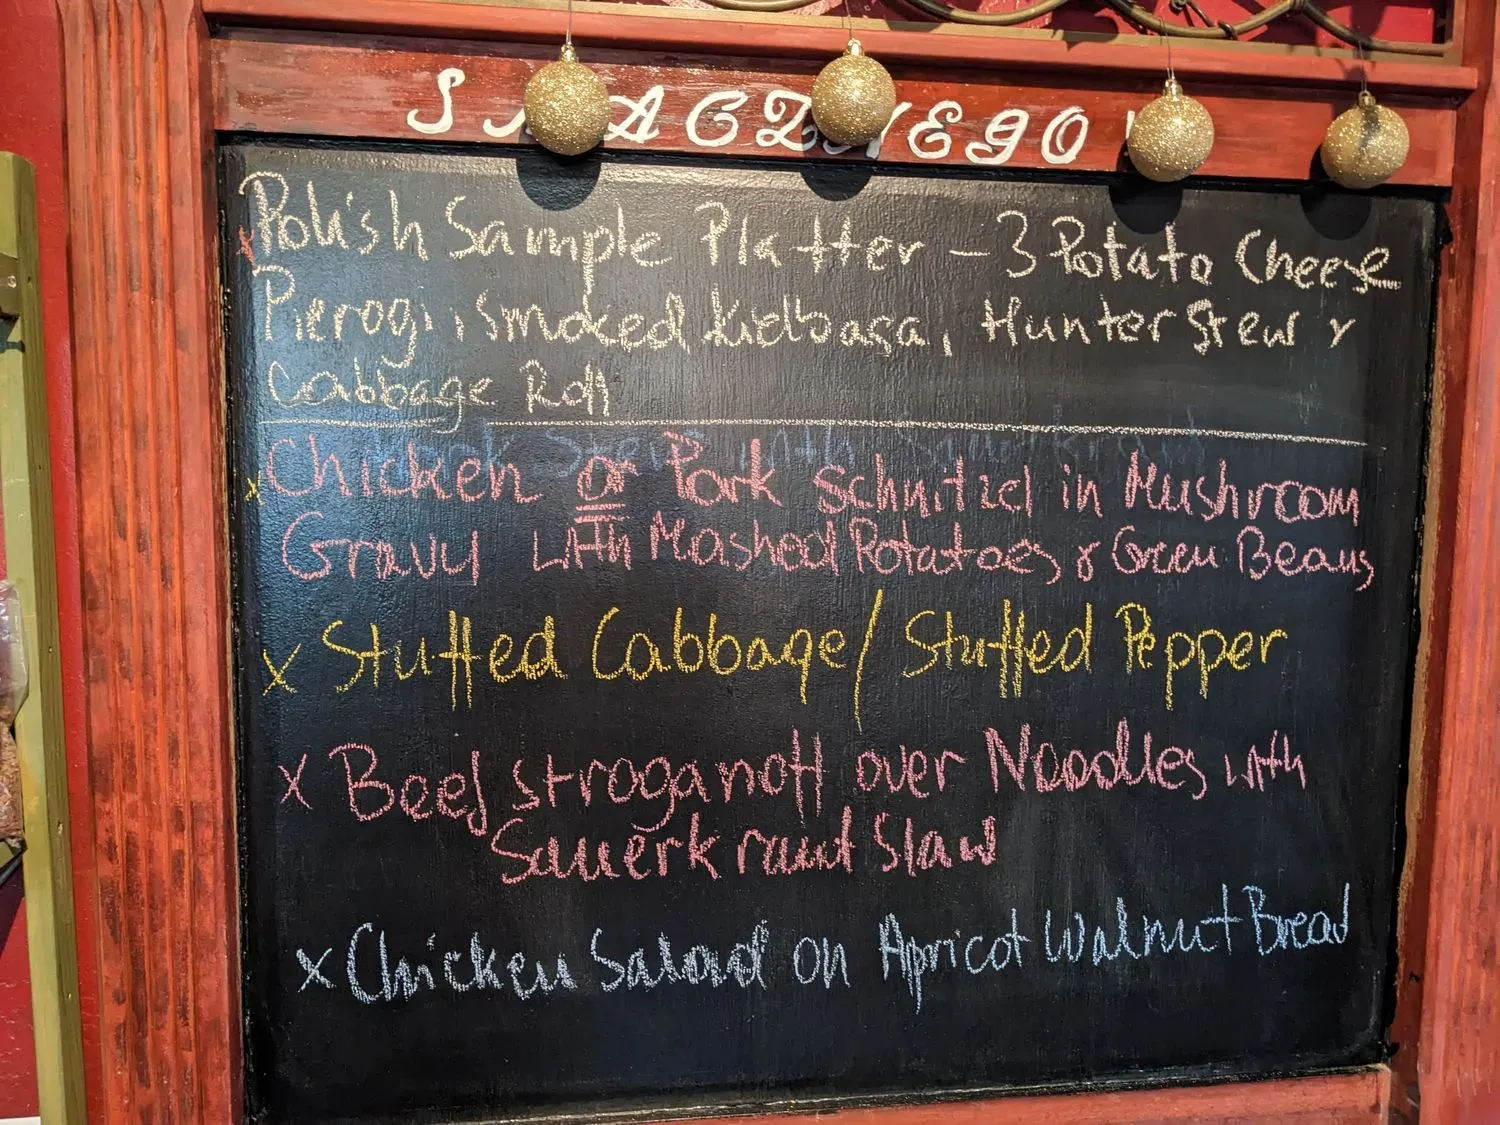 Polish Sample Platter - 3 Potato Cheese
Pierogi, smoked kielbasa, Hunter Stew &
Cabbage Roll
x Chicken or Pork Schnitzel in Mushroom
Gravy with Mashed Potatoes & Green Beans
x Stuffed Cabbage/ Stuffed Pepper
x Beef stroganoff over Noodles with
Sauerkraut Slaw
x Chicken Salad on Apricot Walnut Bread